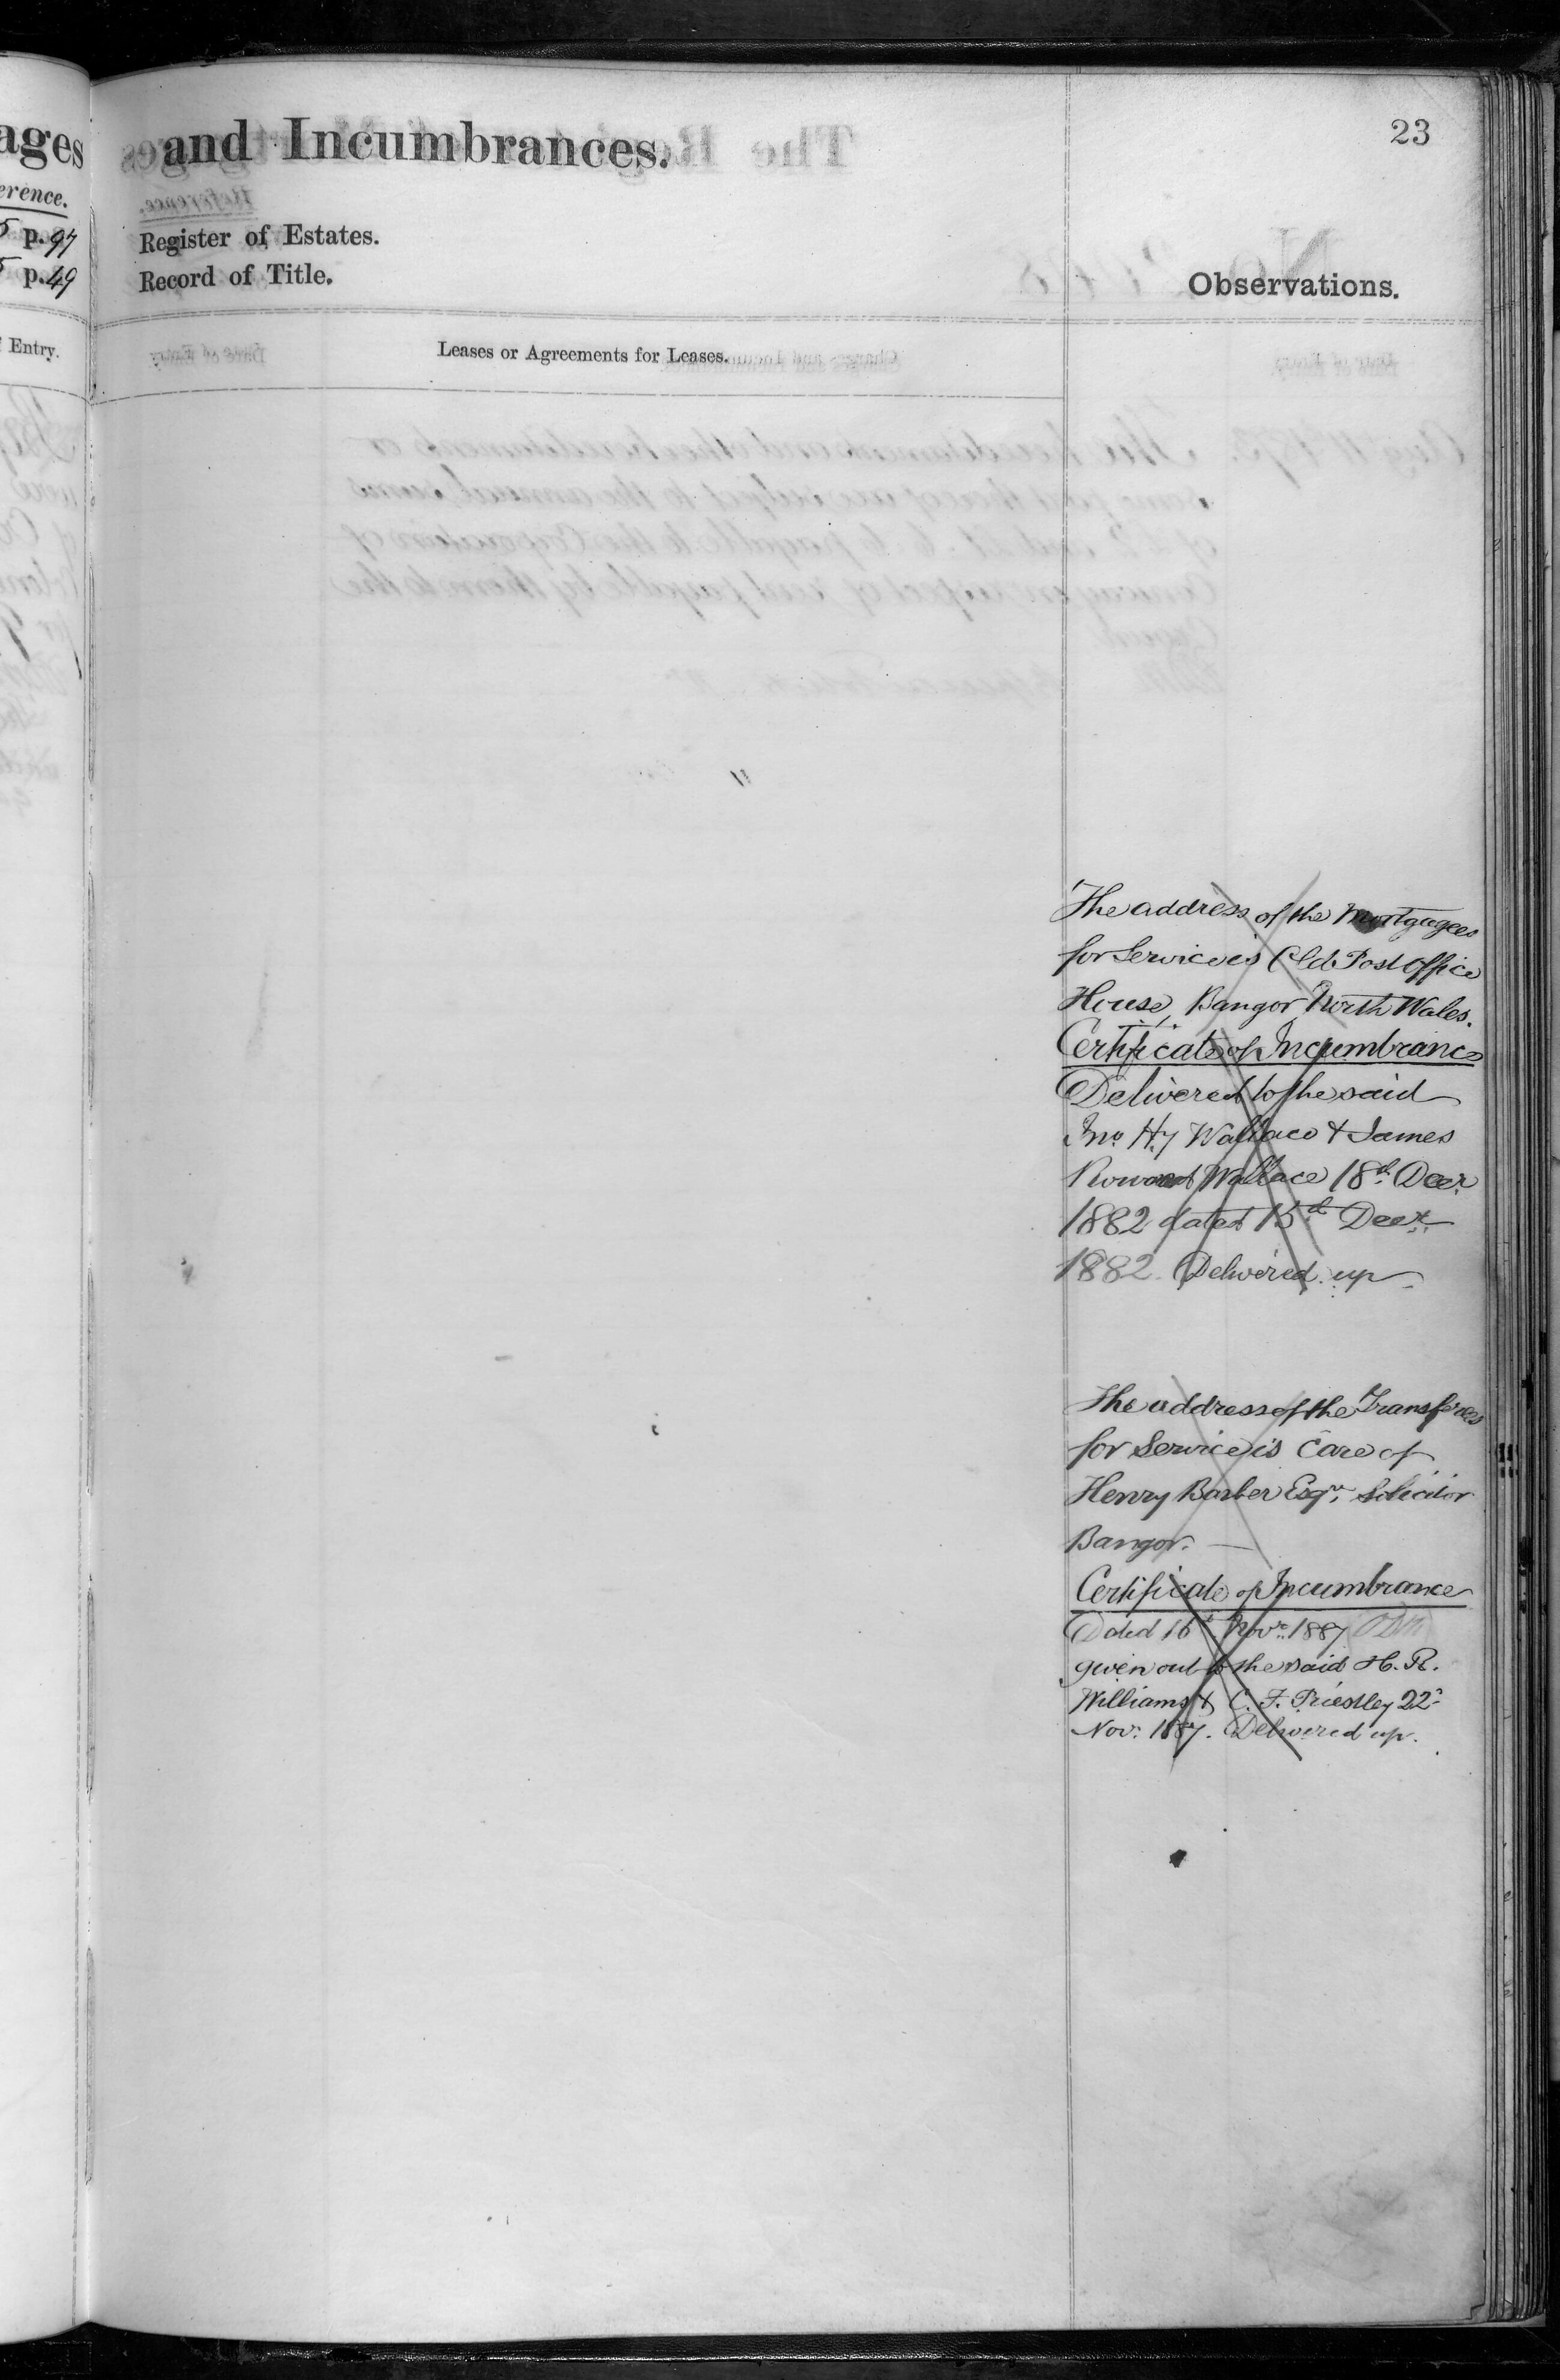 ages
erence.
p. 97
p. 49
Entry.
and Incumbrances.
23
Register of Estates.
Record of Title.
Observations.
Leases or Agreements for Leases.
The address of the Mortgagees
for Service is Old Post Office
House, Bangor North Wales.
Certificate of Incumbrance
Delivered to the said
Jno. Hy Wallace & James
Wallace 18th Decr
1882 dated 15th Decr
1882. Delivered up
The address of the Transferees
for Service is Care of
Henry Barber Esqre. Solicitor
Bangor.
Certificate of Incumbrance
Dated 16th Novr. 1887
given out to the said H. R.
Williams & C. F. Priestley 22d
Nov: 1887. Delivered up.